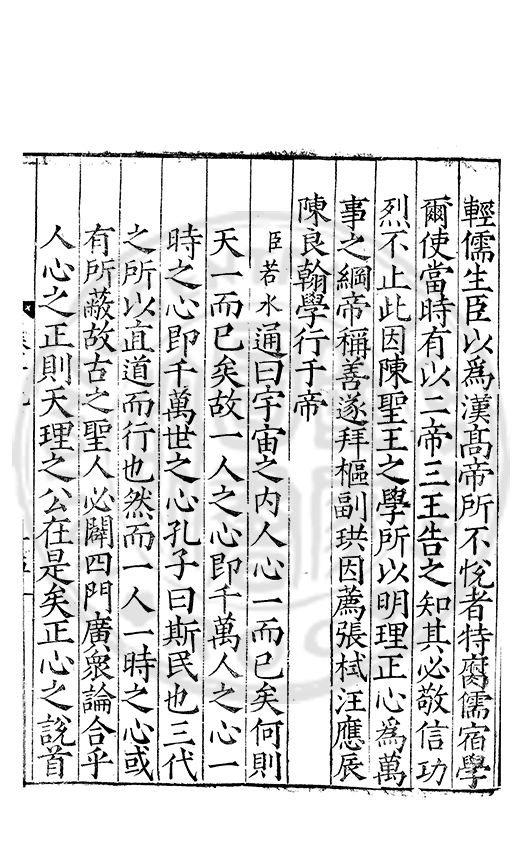 輕儒生臣以爲漢高帝所不悅者特腐儒宿學
爾使當時有以二帝三王告之知其必敬信功
烈不止此因陳聖王之學所以明理正心爲萬
事之綱帝稱善遂拜樞副珙因薦張栻汪應辰
陳良翰學行于帝
臣若水通曰宇宙之内人心一而已矣何則
天一而已矣故一人之心即千萬人之心一
時之心即千萬世之心孔子曰斯民也三代
之所以直道而行也然而一人一時之心或
有所蔽故古之聖人必闢四門廣衆論合乎
人心之正則天理之公在是矣正心之說首